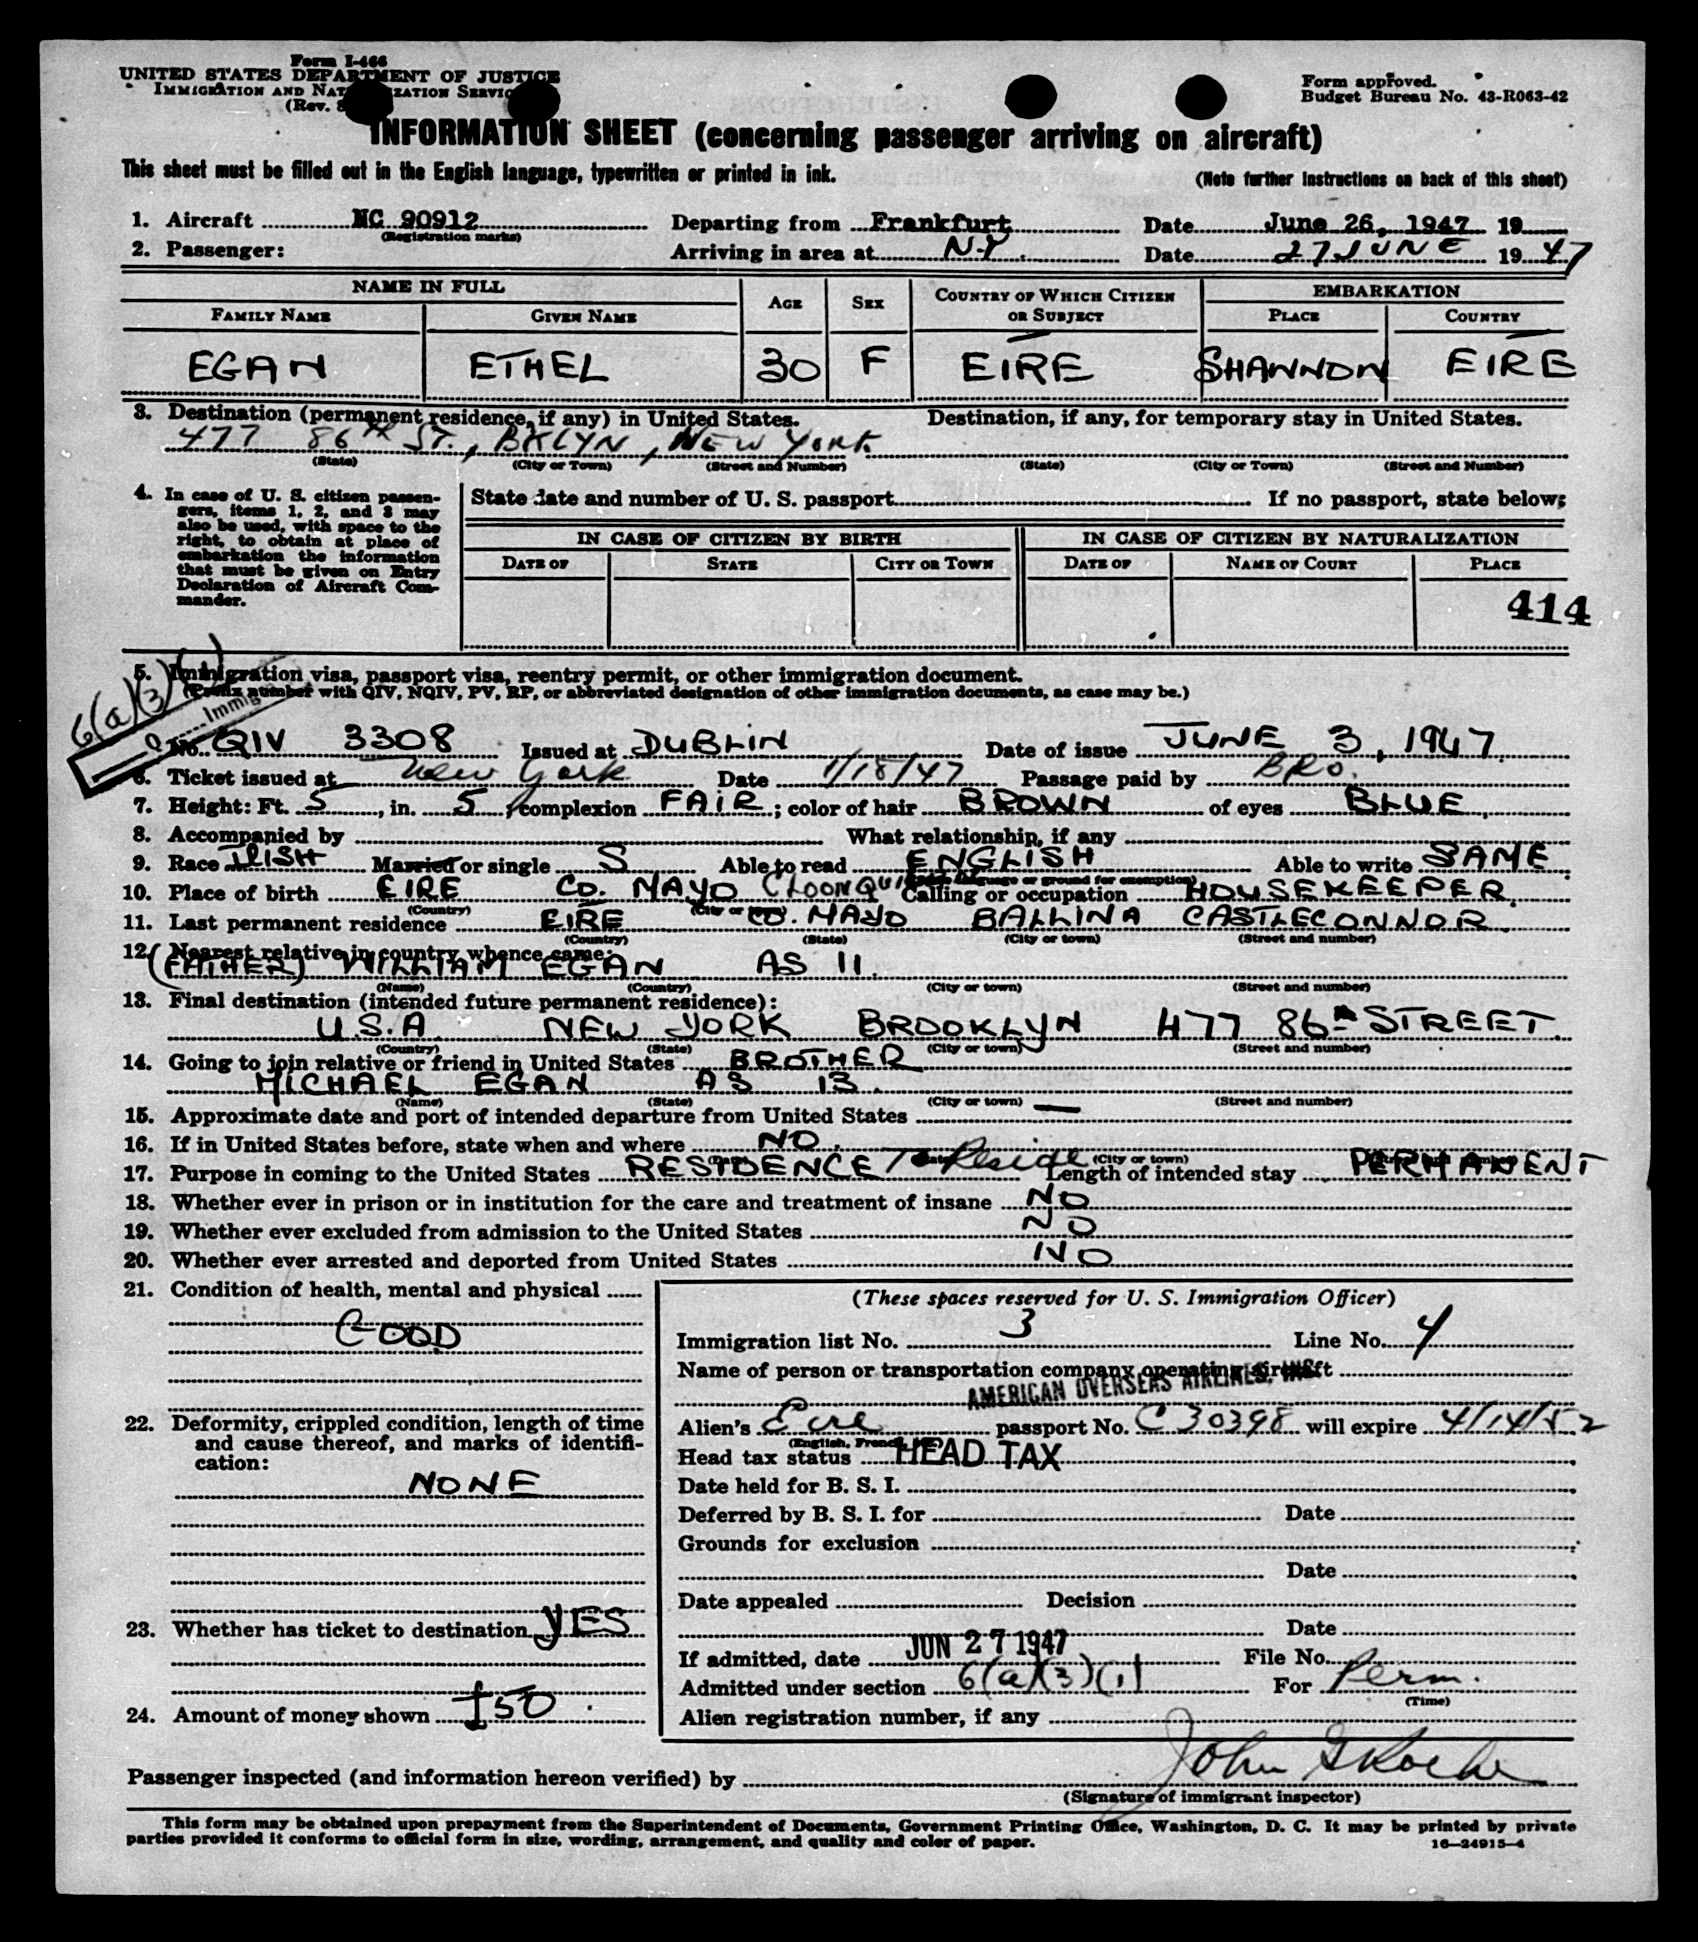 Form I-466
UNITED STATES DEPARTMENT OF JUSTICE
IMMIGRATION AND NATURALIZATION SERVICE
(Rev.
Form approved.
Budget Bureau No. 43-R063-42
INFORMATION SHEET (concerning passenger arriving on aircraft)
This sheet must be filled out in the English language, typewritten or printed in ink.
(Note further instructions on back of this sheet)
1. Aircraft NC 90912 Departing from Frankfurt Date June 26, 1947 19
(Registration marks)
2. Passenger: Arriving in area at N.Y. Date 27 JUNE 19 47
NAME IN FULL AGE SEX COUNTRY OF WHICH CITIZEN OR SUBJECT EMBARKATION
FAMILY NAME GIVEN NAME PLACE COUNTRY
EGAN ETHEL 30 F EIRE SHANNON EIRE
3. Destination (permanent residence, if any) in United States. Destination, if any, for temporary stay in United States.
477 86TH ST., BKLYN, NEW YORK
(State) (City or Town) (Street and Number) (State) (City or Town) (Street and Number)
4. In case of U. S. citizen passen-
gers, items 1, 2, and 3 may
also be used, with space to the
right, to obtain at place of
embarkation the information
that must be given on Entry
Declaration of Aircraft Com-
mander.
State date and number of U. S. passport If no passport, state below:
IN CASE OF CITIZEN BY BIRTH IN CASE OF CITIZEN BY NATURALIZATION
DATE OF STATE CITY OR TOWN DATE OF NAME OF COURT PLACE
414
5. Immigration visa, passport visa, reentry permit, or other immigration document.
(Prefix number with QIV, NQIV, PV, RP, or abbreviated designation of other immigration documents, as case may be.)
6(a)(3)(1)
Immig
No. QIV 3308 Issued at DUBLIN Date of issue JUNE 3, 1947
6. Ticket issued at New York Date 1/18/47 Passage paid by BRO.
7. Height: Ft. 5, in. 5; complexion FAIR; color of hair BROWN of eyes BLUE
8. Accompanied by What relationship, if any
9. Race IRISH Married or single S Able to read ENGLISH Able to write SAME
(State language or ground for exemption)
10. Place of birth EIRE CO. MAYO Calling or occupation HOUSEKEEPER
(Country) (City or town)
11. Last permanent residence EIRE CO. MAYO BALLINA CASTLECONNOR
(Country) (State) (City or town) (Street and number)
12. Nearest relative in country whence came:
(FATHER) WILLIAM EGAN AS 11.
(Name) (Country) (City or town) (Street and number)
13. Final destination (intended future permanent residence):
U.S.A. NEW YORK BROOKLYN 477 86TH STREET.
(Country) (State) (City or town) (Street and number)
14. Going to join relative or friend in United States BROTHER
MICHAEL EGAN AS 13.
(Name) (State) (City or town) (Street and number)
15. Approximate date and port of intended departure from United States —
16. If in United States before, state when and where NO.
(Date) (City or town)
17. Purpose in coming to the United States RESIDENCE / To Reside Length of intended stay PERMANENT
18. Whether ever in prison or in institution for the care and treatment of insane NO
19. Whether ever excluded from admission to the United States NO
20. Whether ever arrested and deported from United States NO
21. Condition of health, mental and physical
GOOD
22. Deformity, crippled condition, length of time
and cause thereof, and marks of identifi-
cation:
NONE
23. Whether has ticket to destination YES
24. Amount of money shown £50.
(These spaces reserved for U. S. Immigration Officer)
Immigration list No. 3 Line No. 4
Name of person or transportation company operating aircraft
AMERICAN OVERSEAS AIRLINES, INC.
Alien's Eire passport No. C 30398 will expire 4/14/52
(English, French, etc.)
Head tax status HEAD TAX
Date held for B. S. I.
Deferred by B. S. I. for Date
Grounds for exclusion
Date
Date appealed Decision
Date
If admitted, date JUN 27 1947 File No.
Admitted under section 6(a)(3)(1) For Perm.
(Time)
Alien registration number, if any
Passenger inspected (and information hereon verified) by John G Roche
(Signature of immigrant inspector)
This form may be obtained upon prepayment from the Superintendent of Documents, Government Printing Office, Washington, D. C. It may be printed by private
parties provided it conforms to official form in size, wording, arrangement, and quality and color of paper.
16—24915-4